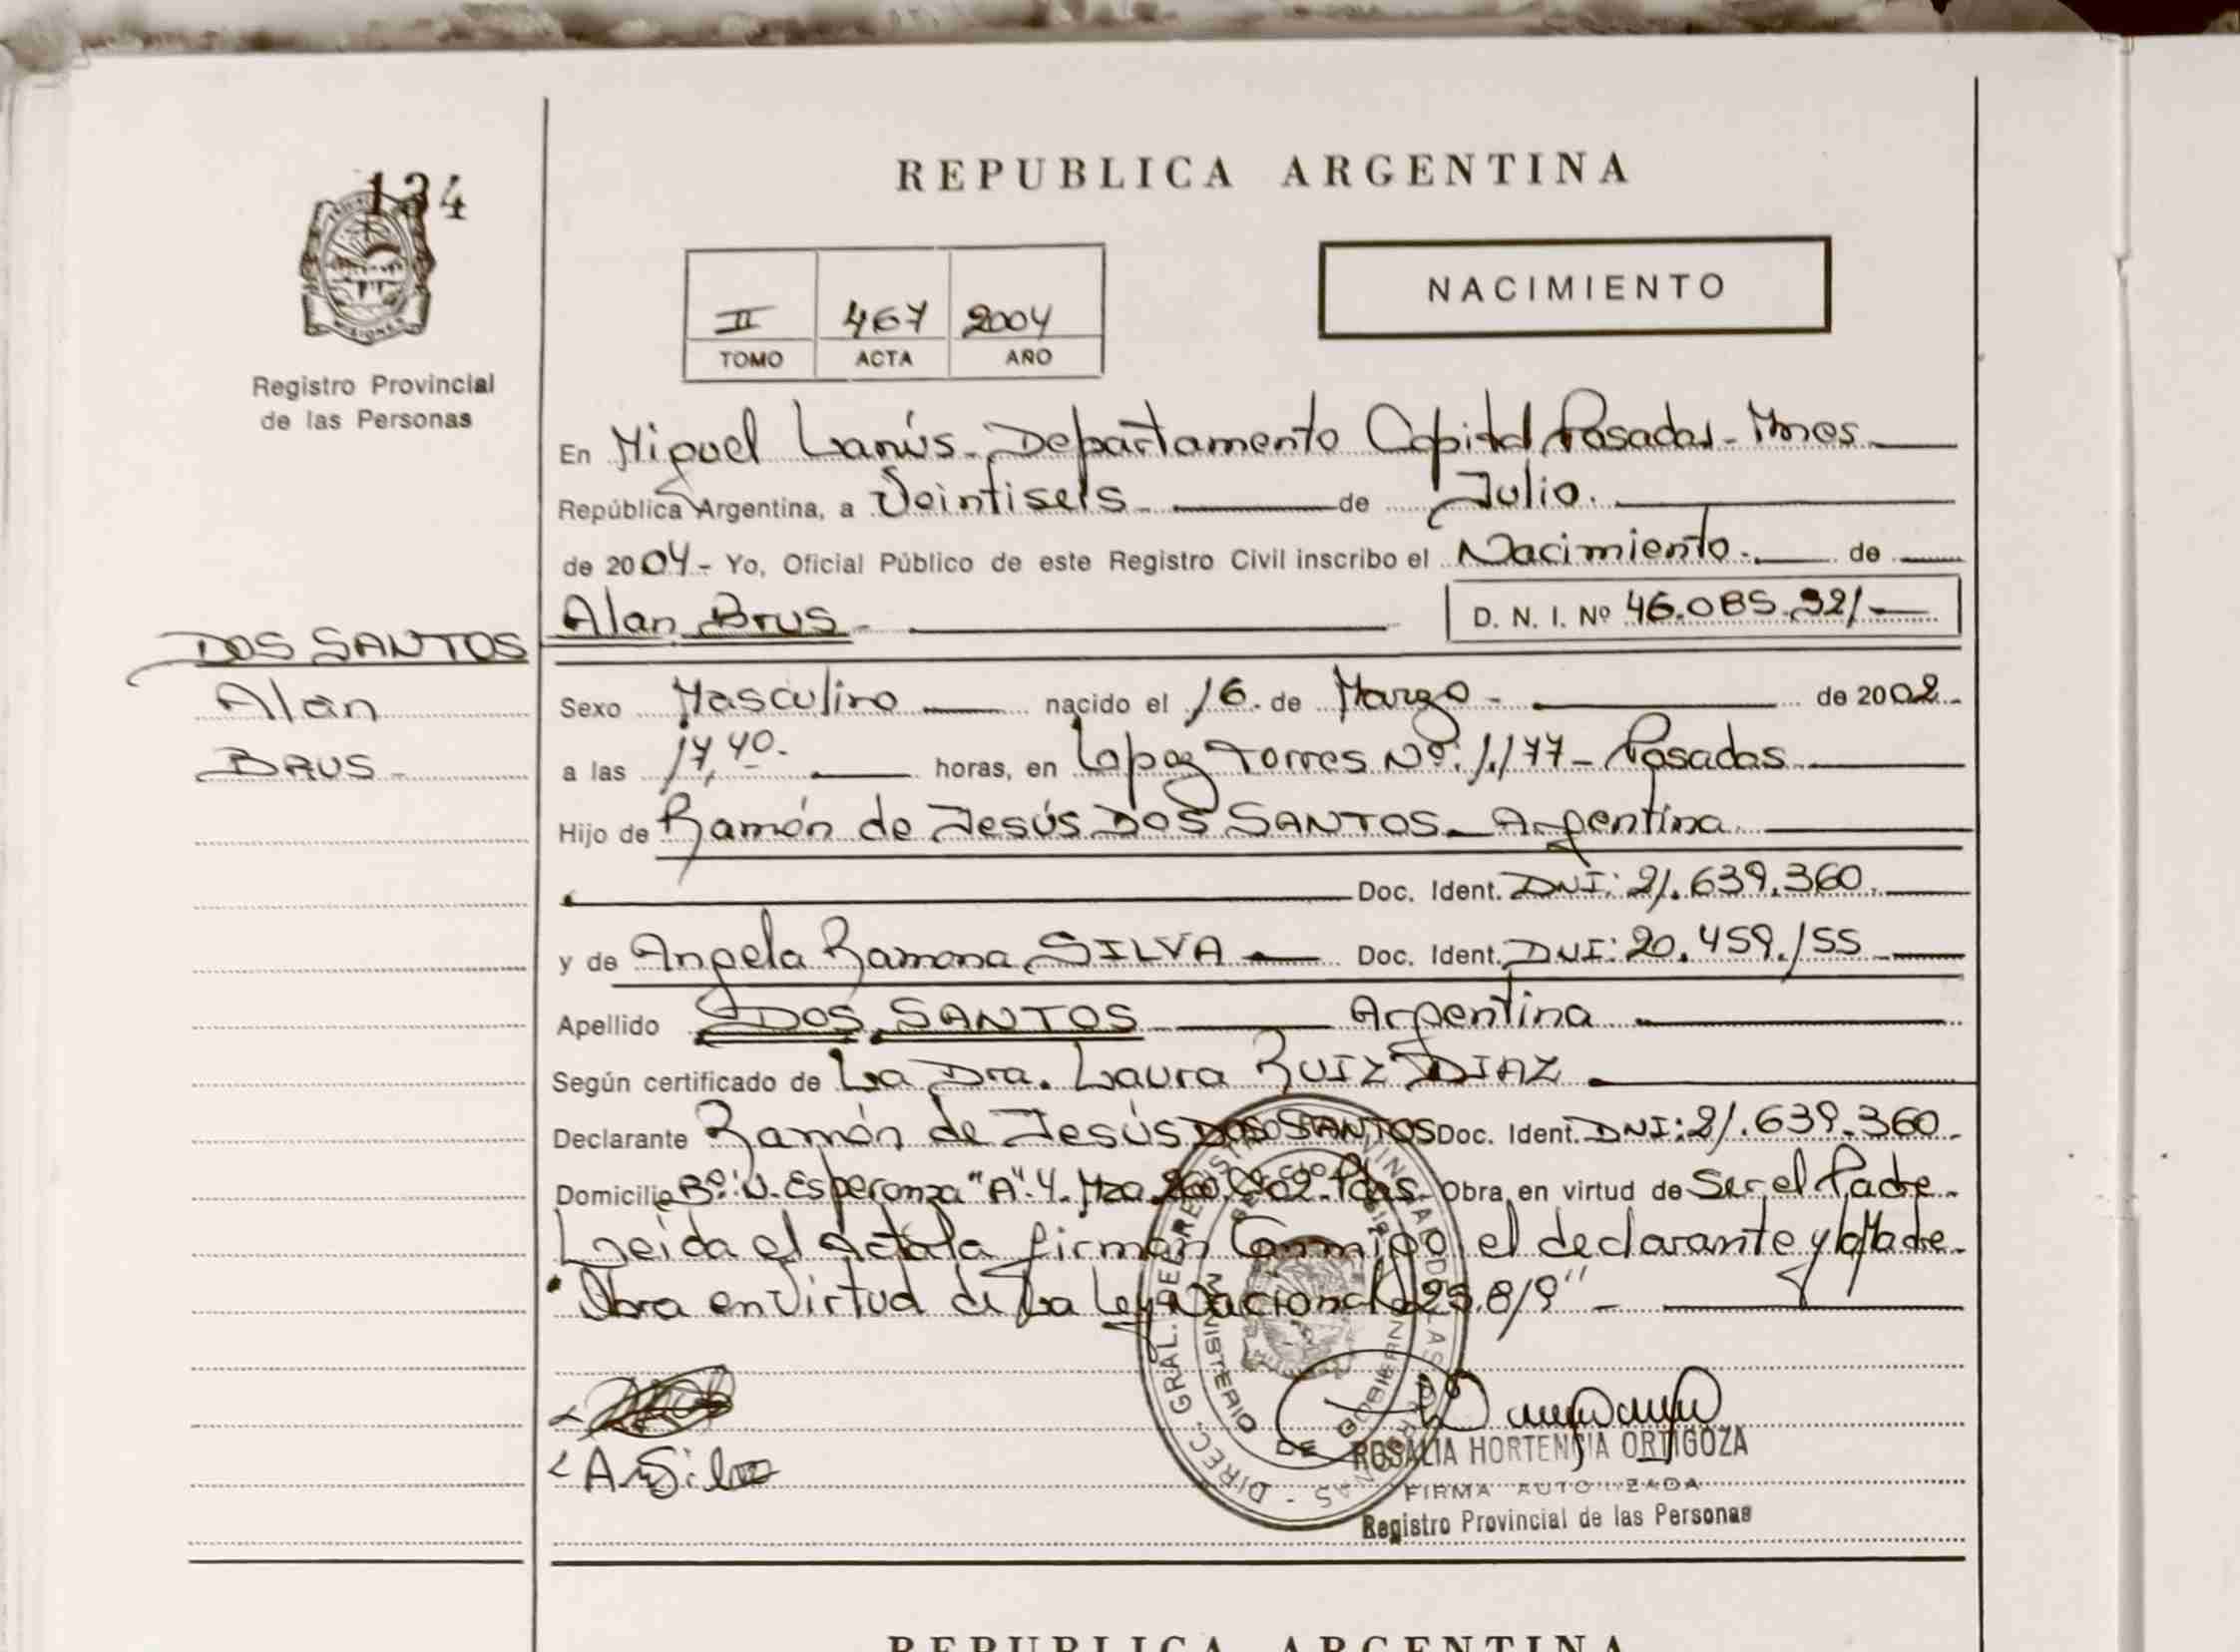 134
REPUBLICA ARGENTINA
NACIMIENTO
II 467 2004
TOMO ACTA AÑO
MISIONES
Registro Provincial
de las Personas
En Miguel Lanús - Departamento Capital Posadas - Mnes
República Argentina, a Veintiseis de Julio.
de 2004 - Yo, Oficial Público de este Registro Civil inscribo el Nacimiento. de
Alan Brus - D. N. I. Nº 46.085.921
DOS SANTOS
Alan
BRUS
Sexo Masculino nacido el 16 de Marzo - de 2002 -
a las 17,40 - horas, en Lopez Torres Nº: 1.177 - Posadas
Hijo de Ramón de Jesús DOS SANTOS - Argentina
Doc. Ident. DNI: 21.639.360
y de Angela Ramona SILVA Doc. Ident. DNI: 20.459.155
Apellido DOS SANTOS Argentina
Según certificado de La Dra. Laura RUIZ DIAZ
Declarante Ramón de Jesús DOS SANTOS Doc. Ident. DNI: 21.639.360 -
Domicilio Bº: N. Esperanza "A" 4 - Mza. Pdas - Obra en virtud de Ser el Padre -
Leída el Acta la firman Conmigo el declarante y la Madre -
"Obra en Virtud de La Ley Nacional 25.819" -
DIREC. GRAL. DE REGISTRO PROVINCIAL DE LAS PERSONAS
MINISTERIO DE GOBIERNO
A Silva
ROSALIA HORTENCIA ORTIGOZA
FIRMA AUTORIZADA
Registro Provincial de las Personas
REPUBLICA ARGENTINA